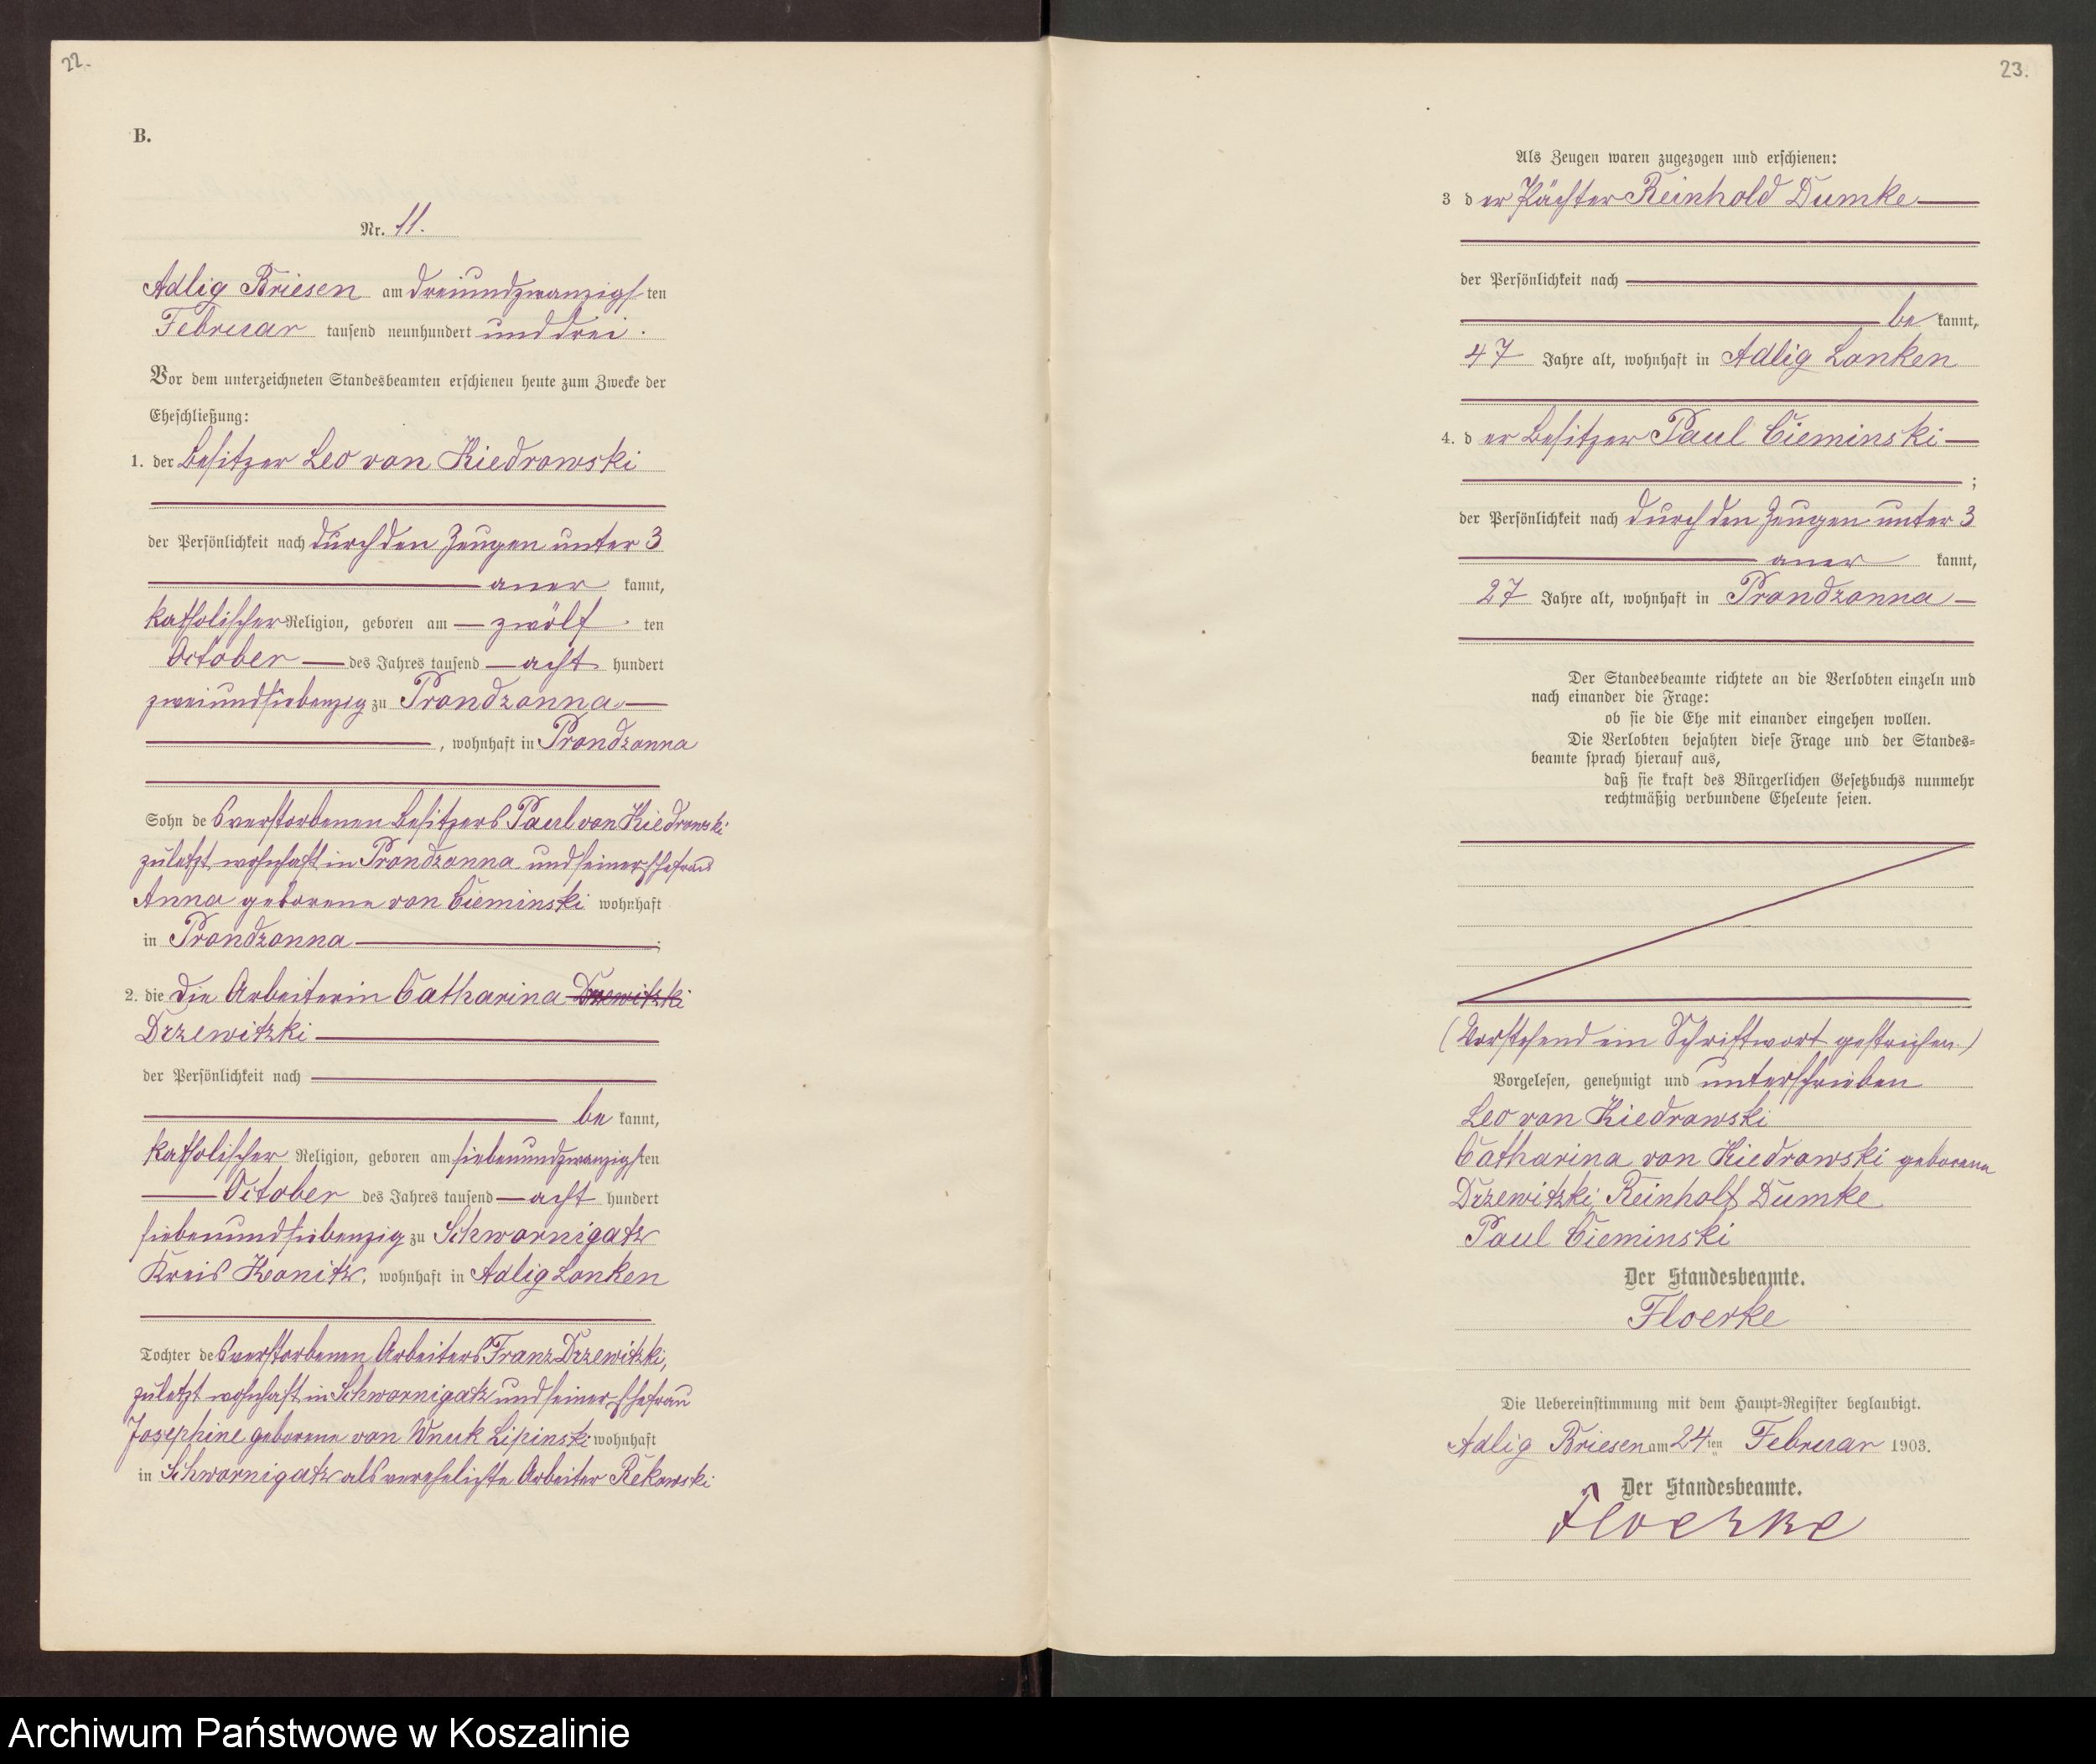 22.
B.
Nr. 11.
Adlig Briesen am dreiundzwanzigsten
Februar tausend neunhundert und drei.
Vor dem unterzeichneten Standesbeamten erschienen heute zum Zwecke der
Eheschließung:
1. der Besitzer Leo von Kiedrowski
der Persönlichkeit nach durch den Zeugen unter 3
aner kannt,
katholischer Religion, geboren am zwölf ten
October des Jahres tausend acht hundert
zweiundsiebenzig zu Prondzonna
, wohnhaft in Prondzonna
Sohn des verstorbenen Besitzers Paul von Kiedrowski
zuletzt wohnhaft in Prondzonna und seiner Ehefrau
Anna geborene von Cieminski wohnhaft
in Prondzonna ;
2. die die Arbeiterin Catharina Drewitzki
Drzewitzki
der Persönlichkeit nach
be kannt,
katholischer Religion, geboren am siebenundzwanzigsten
October des Jahres tausend acht hundert
siebenundsiebenzig zu Schwornigatz
Kreis Konitz, wohnhaft in Adlig Lonken
Tochter des verstorbenen Arbeiters Franz Drzewitzki,
zuletzt wohnhaft in Schwornigatz und seiner Ehefrau
Josephine geborene von Wnuk Lipinski wohnhaft
in Schwornigatz als verehelichte Arbeiter Rekowski
23.
Als Zeugen waren zugezogen und erschienen:
3 der Pächter Reinhold Dumke
der Persönlichkeit nach
be kannt,
47 Jahre alt, wohnhaft in Adlig Lonken
4. der Besitzer Paul Cieminski
;
der Persönlichkeit nach durch den Zeugen unter 3
aner kannt,
27 Jahre alt, wohnhaft in Prondzonna
Der Standesbeamte richtete an die Verlobten einzeln und
nach einander die Frage:
ob sie die Ehe mit einander eingehen wollen.
Die Verlobten bejahten diese Frage und der Standes-
beamte sprach hierauf aus,
daß sie kraft des Bürgerlichen Gesetzbuchs nunmehr
rechtmäßig verbundene Eheleute seien.
(Vorstehend ein Schriftwort gestrichen.)
Vorgelesen, genehmigt und unterschrieben
Leo von Kiedrowski
Catharina von Kiedrowski geborene
Drzewitzki, Reinhold Dumke
Paul Cieminski
Der Standesbeamte.
Floerke
Die Uebereinstimmung mit dem Haupt-Register beglaubigt.
Adlig Briesen am 24ten Februar 1903.
Der Standesbeamte.
Floerke
Archiwum Państwowe w Koszalinie